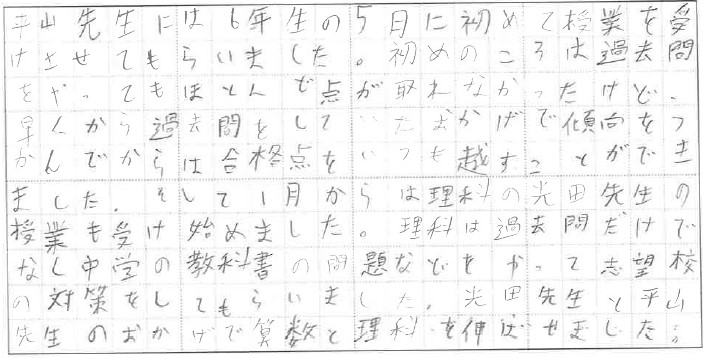 平山先生には6年生の5日に初めて授業を受
けさせてもらいました。初めのころは過去問
をやってもほとんど点が取れなかったけど、
早くから過去問をしていたおかげで傾向をつ
かんでからは合格点をいつも越すことができ
ました。そして1月からは理科の光田先生の
授業も受け始めました。理科は過去問だけで
なく中学の教科書の問題などをやって志望校
の対策をしてもらいました。光田先生と平山
先生のおかげで算数と理科を伸ばせました。